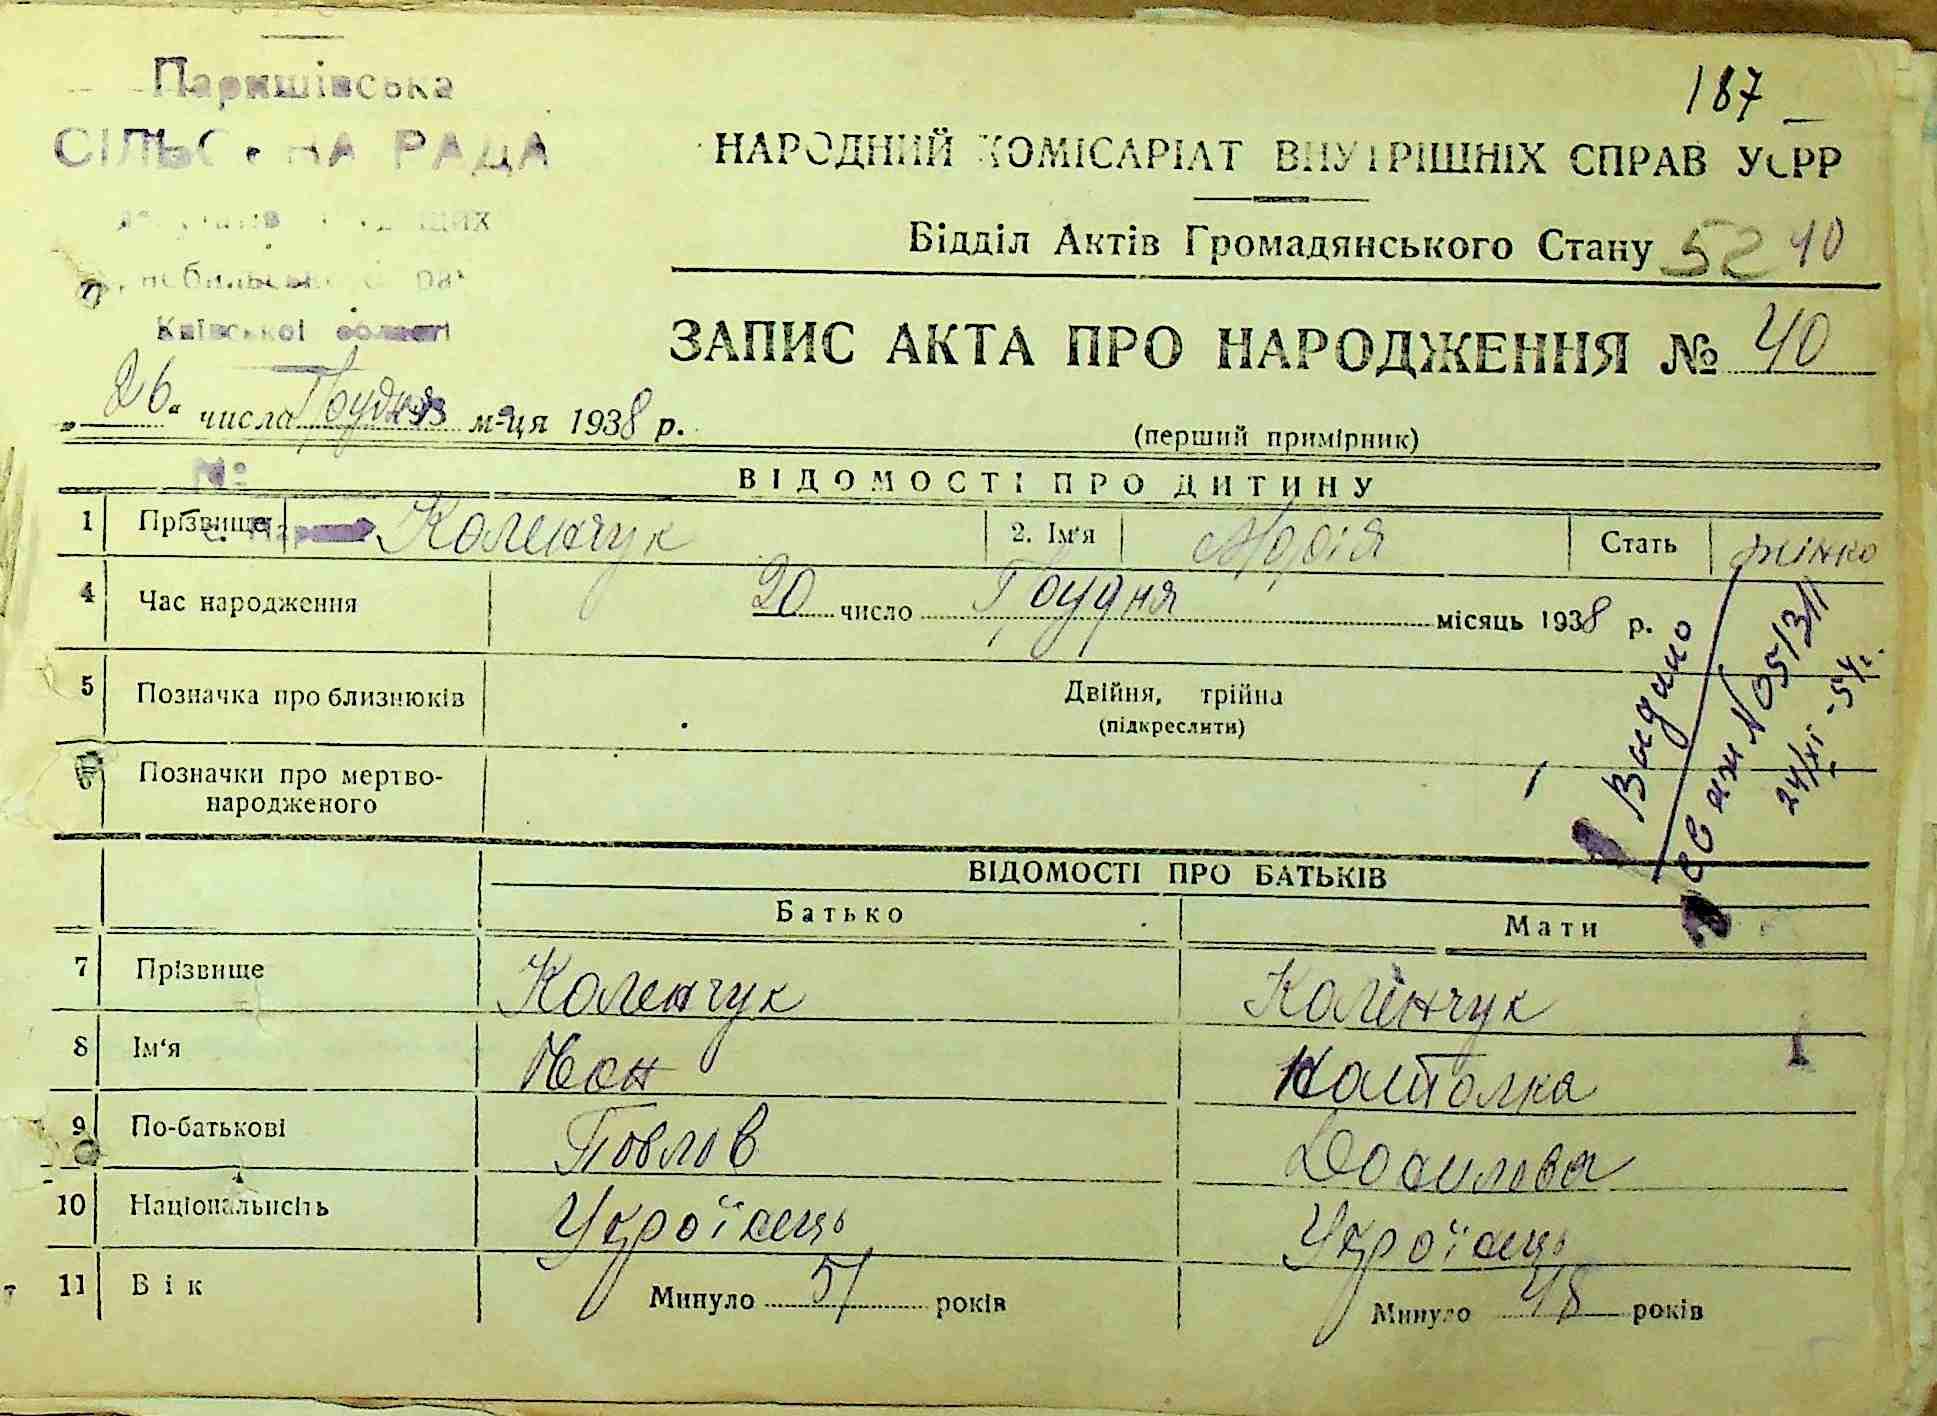 187
Паришівська
СІЛЬС НА РАДА
НАРОДНИЙ КОМІСАРІАТ ВНУТРІШНІХ СПРАВ УСРР
Відділ Актів Громадянського Стану 52 40
Київської області
ЗАПИС АКТА ПРО НАРОДЖЕННЯ № 40
„26“ числа Грудня м-ця 1938 р.
(перший примірник)
№
ВІДОМОСТІ ПРО ДИТИНУ
1 Прізвище Коленчук 2. Ім'я Марія Стать жінка
4 Час народження 20 число Грудня місяць 1938 р.
5 Позначка про близнюків Двійня, трійна
(підкреслити)
6 Позначки про мертво-
народженого
Выдано
№ 05/311
24/XI-54г.
ВІДОМОСТІ ПРО БАТЬКІВ
Батько Мати
7 Прізвище Коленчук Колінчук
8 Ім'я
9 По-батькові Повлов
10 Національність Україець Україець
11 Вік Минуло 51 років Минуло 48 років